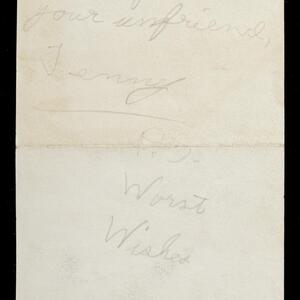 your unfriend,
Jenny
P.S.
Worst
Wishes